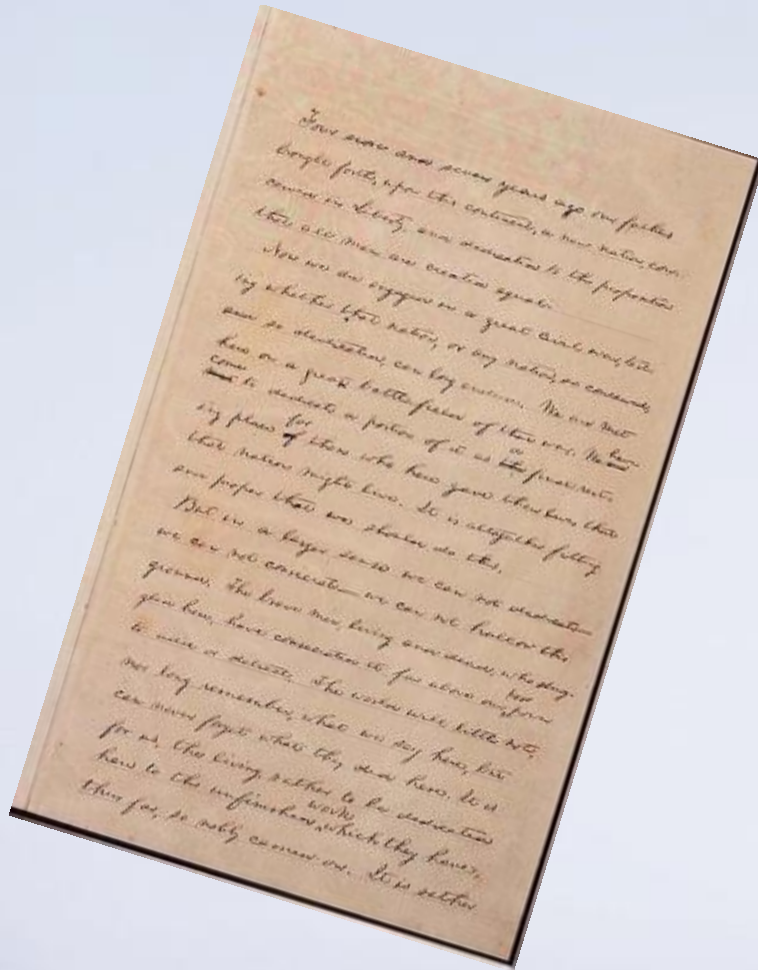 Four score and seven years ago our fathers
brought forth, upon this continent, a new nation, con-
ceived in Liberty, and dedicated to the proposition
that all men are created equal.
Now we are engaged in a great civil war, test-
ing whether that nation, or any nation, so conceived,
and so dedicated, can long endure. We are met
here on a great battlefield of that war. We have
come to dedicate a portion of it as a final rest-
ing place for those who here gave their lives that
that nation might live. It is altogether fitting
and proper that we should do this.
But in a larger sense we can not dedicate—
we can not consecrate— we can not hallow this
ground. The brave men, living and dead, who strug-
gled here, have consecrated it far above our poor power
to add or detract. The world will little note,
nor long remember, what we say here, but
can never forget what they did here. It is
for us, the living, rather to be dedicated
here to the unfinished work which they have,
thus far, so nobly carried on. It is rather